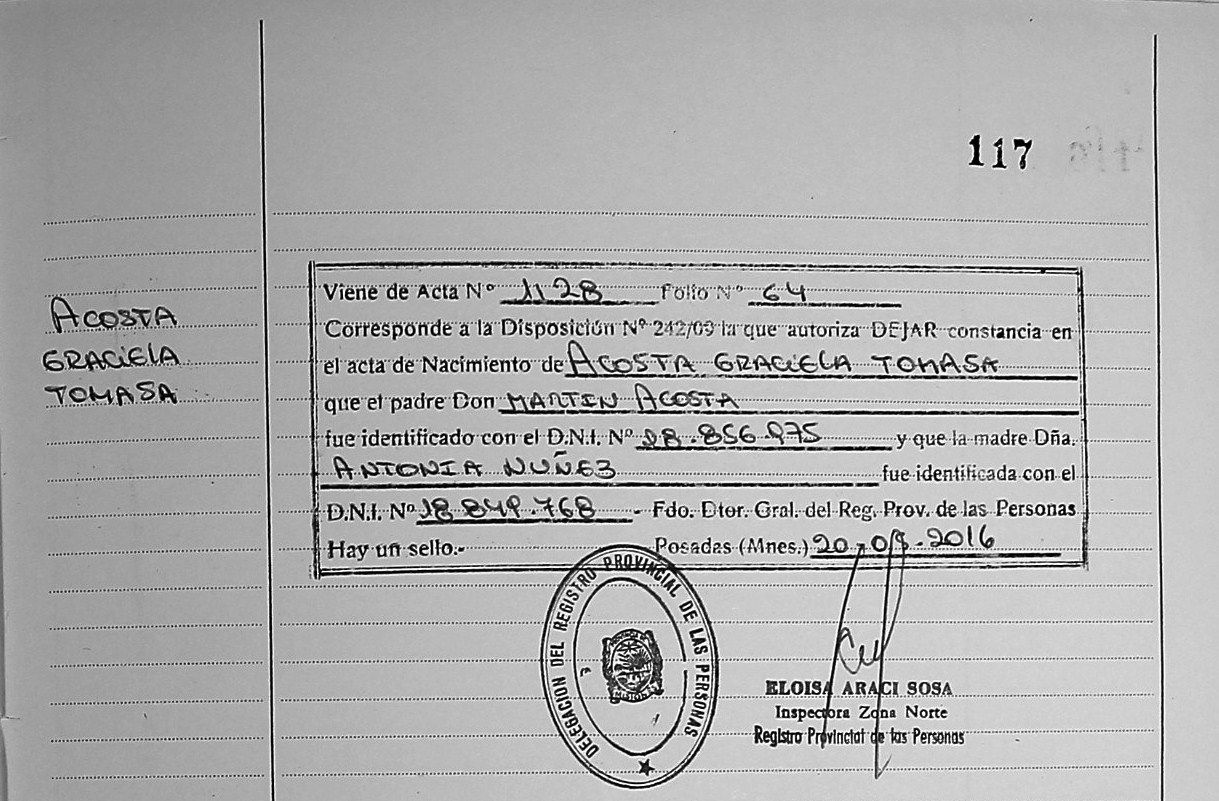 117
ACOSTA
GRACIELA
TOMASA
Viene de Acta Nº 1128 Folio Nº 64
Corresponde a la Disposición Nº 242/09 la que autoriza DEJAR constancia en
el acta de Nacimiento de ACOSTA GRACIELA TOMASA
que el padre Don MARTIN ACOSTA
fue identificado con el D.N.I. Nº y que la madre Dña.
ANTONIA NUÑEZ fue identificada con el
D.N.I. Nº 18.849.768 - Fdo. Dtor. Gral. del Reg. Prov. de las Personas
Hay un sello.- Posadas (Mnes.) 2016
DELEGACION DEL REGISTRO PROVINCIAL DE LAS PERSONAS
ELOISA ARACI SOSA
Inspectora Zona Norte
Registro Provincial de las Personas